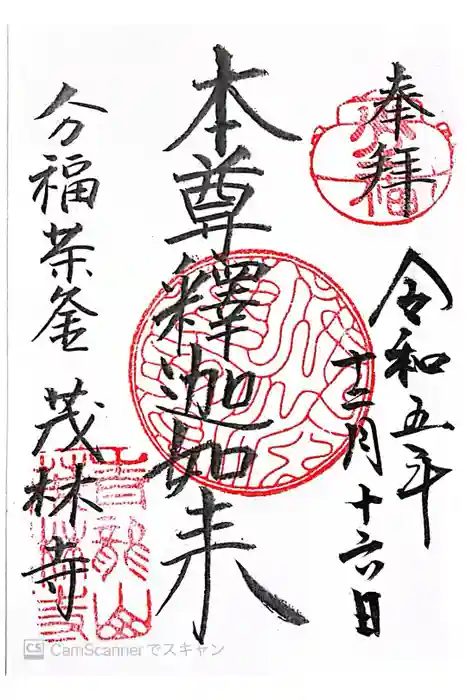 奉拝
令和五年
十二月十六日
本尊釋迦如来
分福茶釜 茂林寺
青龍山
茂林寺
CS CamScannerでスキャン